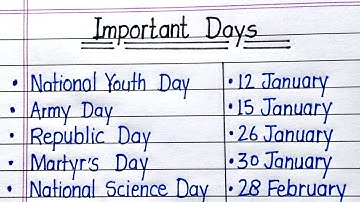 Important Days
• National Youth Day • 12 January
• Army Day • 15 January
• Republic Day • 26 January
• Martyr's Day • 30 January
• National Science Day • 28 February